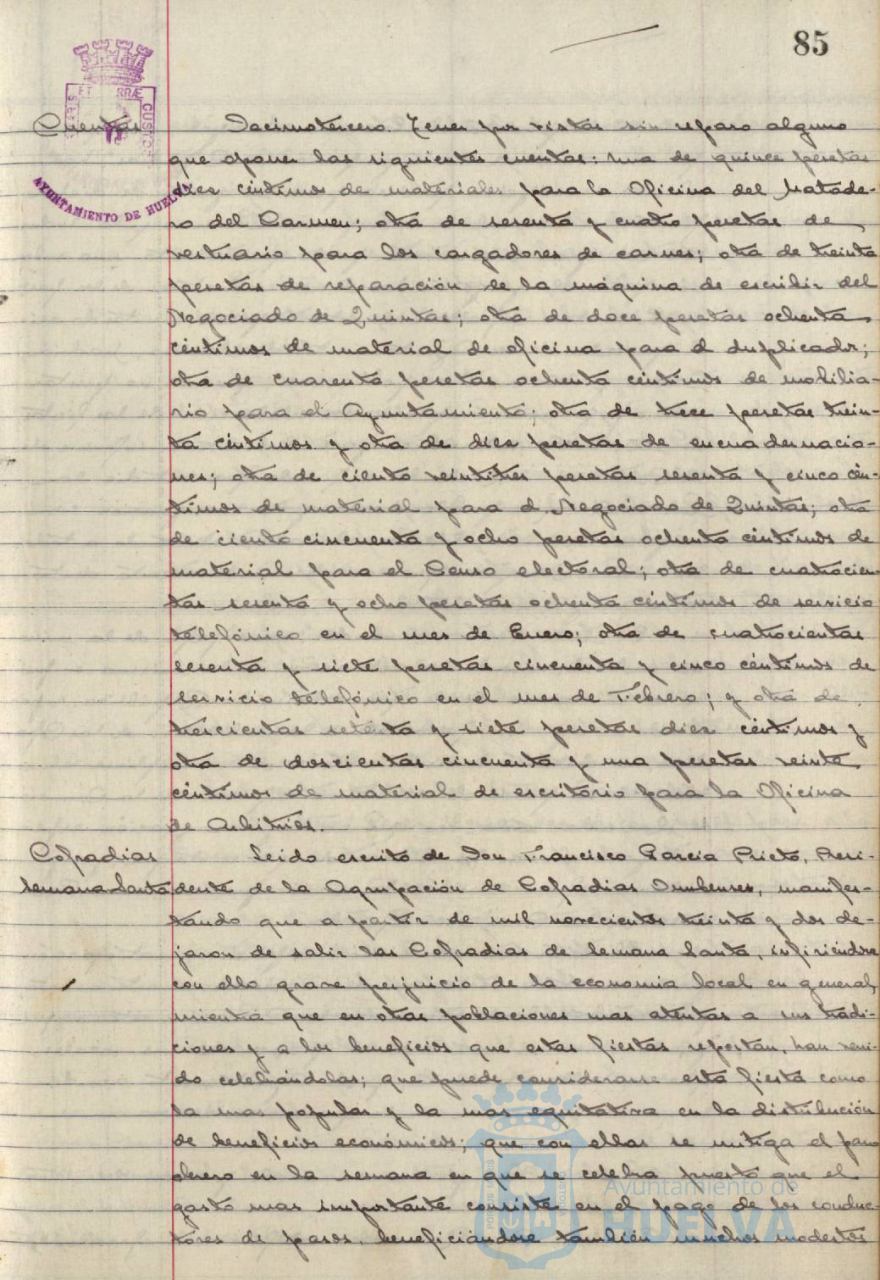 85
PORTUS MARIS ET TERRÆ CUSTODIA
AYUNTAMIENTO DE HUELVA
Cuentas
Décimotercero. Tener por vistas sin reparo alguno
que oponer las siguientes cuentas: una de quince pesetas
diez céntimos de materiales para la Oficina del Matade-
ro del Carmen; otra de sesenta y cuatro pesetas de
vestuario para los cargadores de carnes; otra de treinta
pesetas de reparación de la máquina de escribir del
Negociado de Quintas; otra de doce pesetas ochenta
céntimos de material de oficina para el duplicador;
otra de cuarenta pesetas ochenta céntimos de mobilia-
rio para el Ayuntamiento; otra de trece pesetas trein-
ta céntimos y otra de diez pesetas de encuadernacio-
nes; otra de ciento veintitres pesetas sesenta y cinco cén-
timos de material para el Negociado de Quintas; otra
de ciento cincuenta y ocho pesetas ochenta céntimos de
material para el Censo electoral; otra de cuatrocien-
tas sesenta y ocho pesetas ochenta céntimos de servicio
telefónico en el mes de Enero; otra de cuatrocientas
sesenta y siete pesetas cincuenta y cinco céntimos de
servicio telefónico en el mes de Febrero; y otra de
trescientas setenta y siete pesetas diez céntimos y
otra de doscientas cincuenta y una pesetas veinte
céntimos de material de escritorio para la Oficina
de Arbitrios.
Cofradias
Semana Santa
Leido escrito de Don Francisco Garcia Prieto, Presi-
dente de la Agrupación de Cofradias Onubenses, manifes-
tando que a partir de mil novecientos treinta y dos de-
jaron de salir las Cofradias de Semana Santa, infiriéndose
con ello grave perjuicio de la economia local en general,
mientra que en otras poblaciones mas atentas a sus tradi-
ciones y a los beneficios que estas fiestas reportan, han veni-
do celebrándolas; que puede considerarse esta fiesta como
la mas popular y la mas equitativa en la distribución
de beneficios económicos; que con ellas se mitiga el paro
obrero en la semana en que se celebra puesto que el
gasto mas importante consiste en el pago de los conduc-
tores de pasos, beneficiándose también muchos modestos
Ayuntamiento de
HUELVA